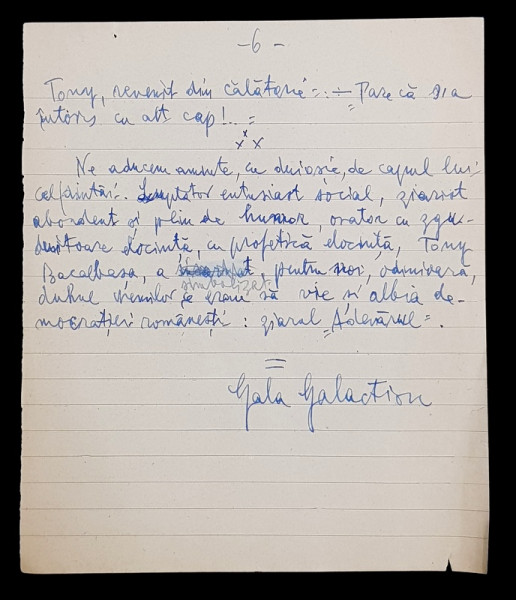 -6-
Tony, revenit din călătorie =. — Parecă s'a
întors cu alt cap!.. =
x x x
Ne aducem aminte, cu duioșie, de capul lui
cel dintâi. Luptător entusiast social, ziarist
abondent și plin de humor, orator cu zgu-
duitoare elocință, cu profetică elocință, Tony
Bacalbașa, a simbolizat, pentru noi, odinioară,
duhul vremilor ce erau să vie și albia de-
mocrației românești: ziarul „Adevărul".
=
Gala Galaction